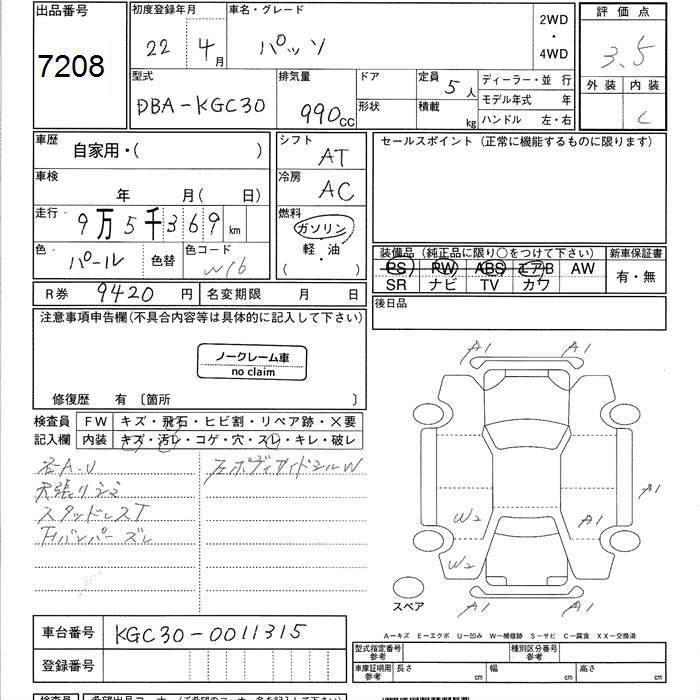 出品番号
7208
初度登録年月
22年 4月
車名・グレード
パッソ
2WD
・
4WD
評価点
3.5
外装 内装
C
型式
DBA-KGC30
排気量
990cc
ドア
形状
定員 5人
積載 kg
ディーラー・並 行
モデル年式 年
ハンドル 左・右
車歴
自家用・( )
車検
年 月(日)
走行
9万5千369km
色
パール
色替
色コード
W16
シフト
AT
冷房
AC
燃料
ガソリン
軽・油
( ・ )
セールスポイント(正常に機能するものに限ります)
装備品(純正品に限り○をつけて下さい)
PS PW ABS エアB AW
SR ナビ TV カワ
新車保証書
有・無
R券 9420円
名変期限 月 日
後日品
注意事項申告欄(不具合内容等は具体的に記入して下さい)
ノークレーム車
no claim
修復歴 有〔箇所 〕
検査員
記入欄
FW キズ・飛石・ヒビ割・リペア跡・×要
内装 キズ・汚レ・コゲ・穴・スレ・キレ・破レ
右A.U
天張りシミ
スタッドレスT
Fバンパーズレ
左ボディサイドシルW
A1 A1
A1
W2 A1
W2
A1 A1
スペア
A-キズ E-エクボ U-凹み W-補修跡 S-サビ C-腐食 XX-交換済
車台番号
KGC30-0011315
登録番号
型式指定番号
参考
種別区分番号
参考
車庫証明用
参考
長さ cm 幅 cm 高さ cm